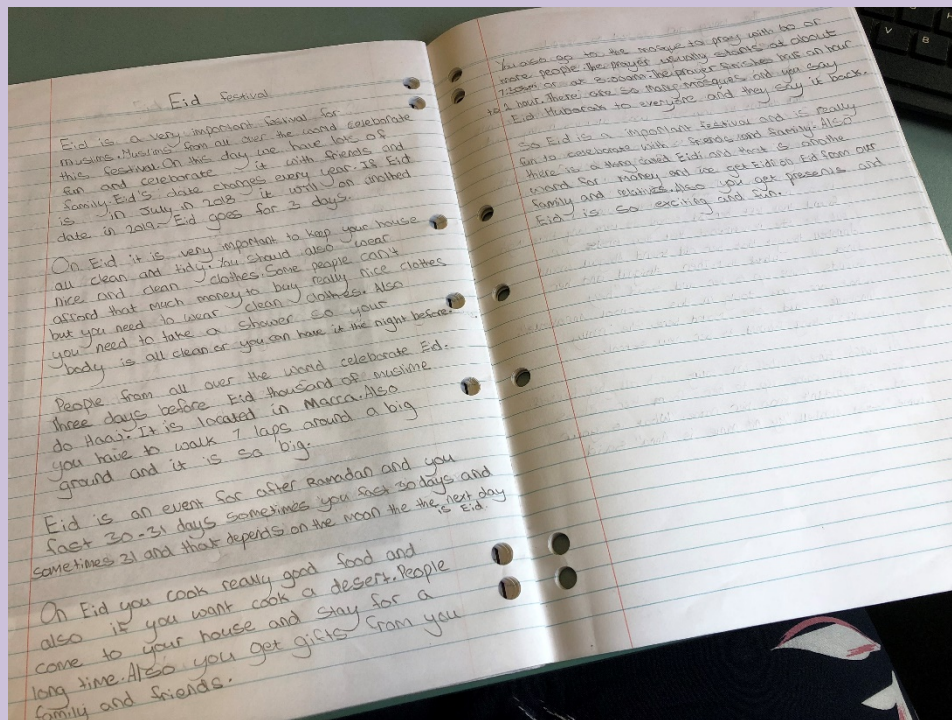 Eid festival
Eid is a very important festival for
muslims. Muslims from all over the world celeborate
this festival. On this day we have lots of
fun and celeborate it with friends and
family. Eid's date changes every year. If Eid
is in July in 2018 it will on
date in 2019. Eid goes for 3 days.
On Eid it is very important to keep your house
all clean and tidy. You should also wear
nice and clean clothes. Some people can't
afford that much money to buy really nice clothes
but you need to wear clean clothes. Also
you need to take a shower so your
body is all clean or you can have it the night before.
People from all over the world celeborate Ed.
Three days before Eid thousand of muslime
do Haaj. It is located in Macca. Also
you have to walk 7 laps around a big
ground and it is so big.
Eid is an event for after Ramadan and you
fast 30-31 days sometimes you fast 30 days and
sometimes 31 and that depends on the moon the the next day
is Eid.
On Eid you cook really good food and
also if you want cook a desert. People
come to your house and stay for a
long time. Also you get gifts from you
family and friends.
You also go to the mosque to pray with 60 or
more people. The prayer usually starts at about
7:30am or at 8:00am. The prayer finishes half an hour
to 1 hour. There are so many mosques and you say
Eid Mubarak to everyone and they say it back.
So Eid is a important festival and is really
fun to celeborate with friends and family. Also
there is a thing called Eidi and that is another
word for money and we get Eidi on Eid from our
family and relatives. Also you get presents and
Eid is so exciting and fun.